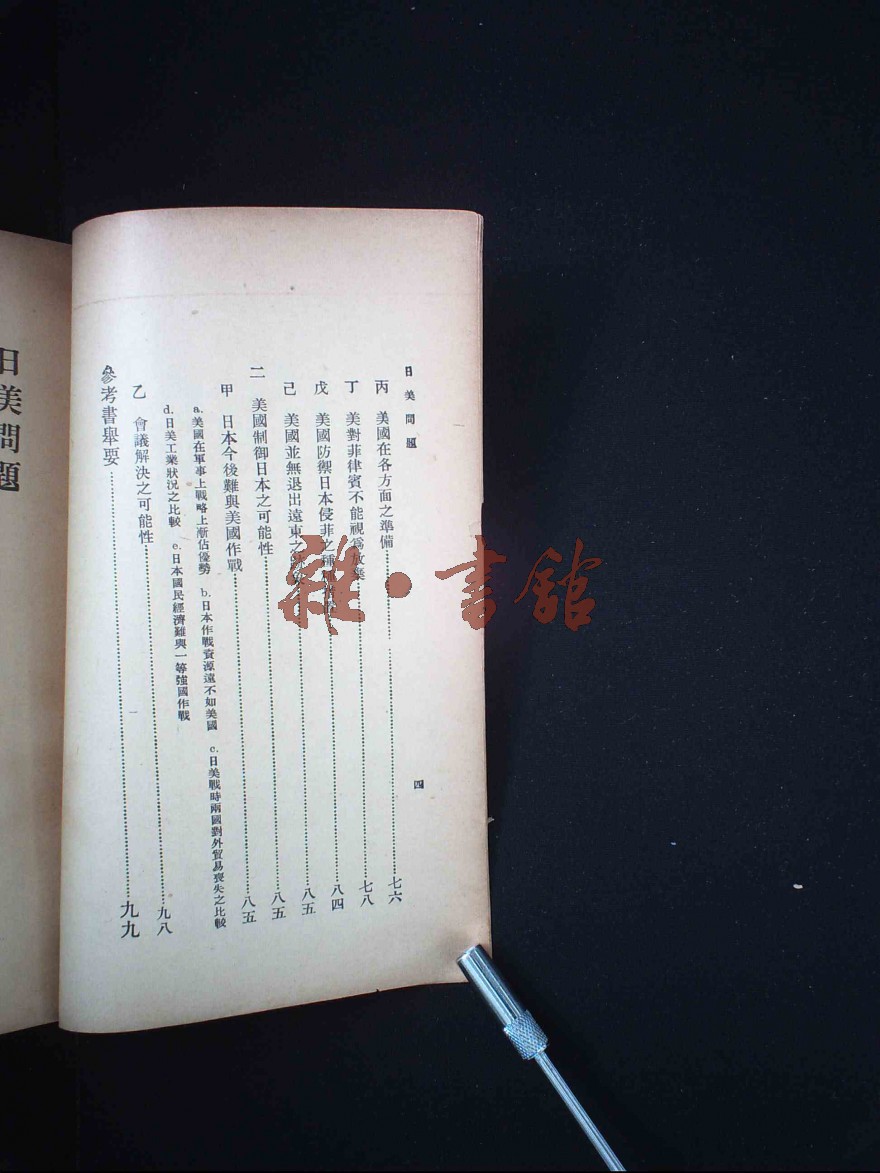 日美問題
四
丙 美國在各方面之準備……七六
丁 美對菲律賓不能視爲放棄……七八
戊 美國防禦日本侵菲之種……八四
己 美國並無退出遠東之……八五
二 美國制御日本之可能性……八五
甲 日本今後難與美國作戰……八五
a. 美國在軍事上戰略上漸佔優勢 b. 日本作戰資源遠不如美國 c. 日美戰時兩國對外貿易喪失之比較
d. 日美工業狀況之比較 e. 日本國民經濟難與一等強國作戰
乙 會議解決之可能性……九八
參考書舉要……九九
日美問題
雜·書館